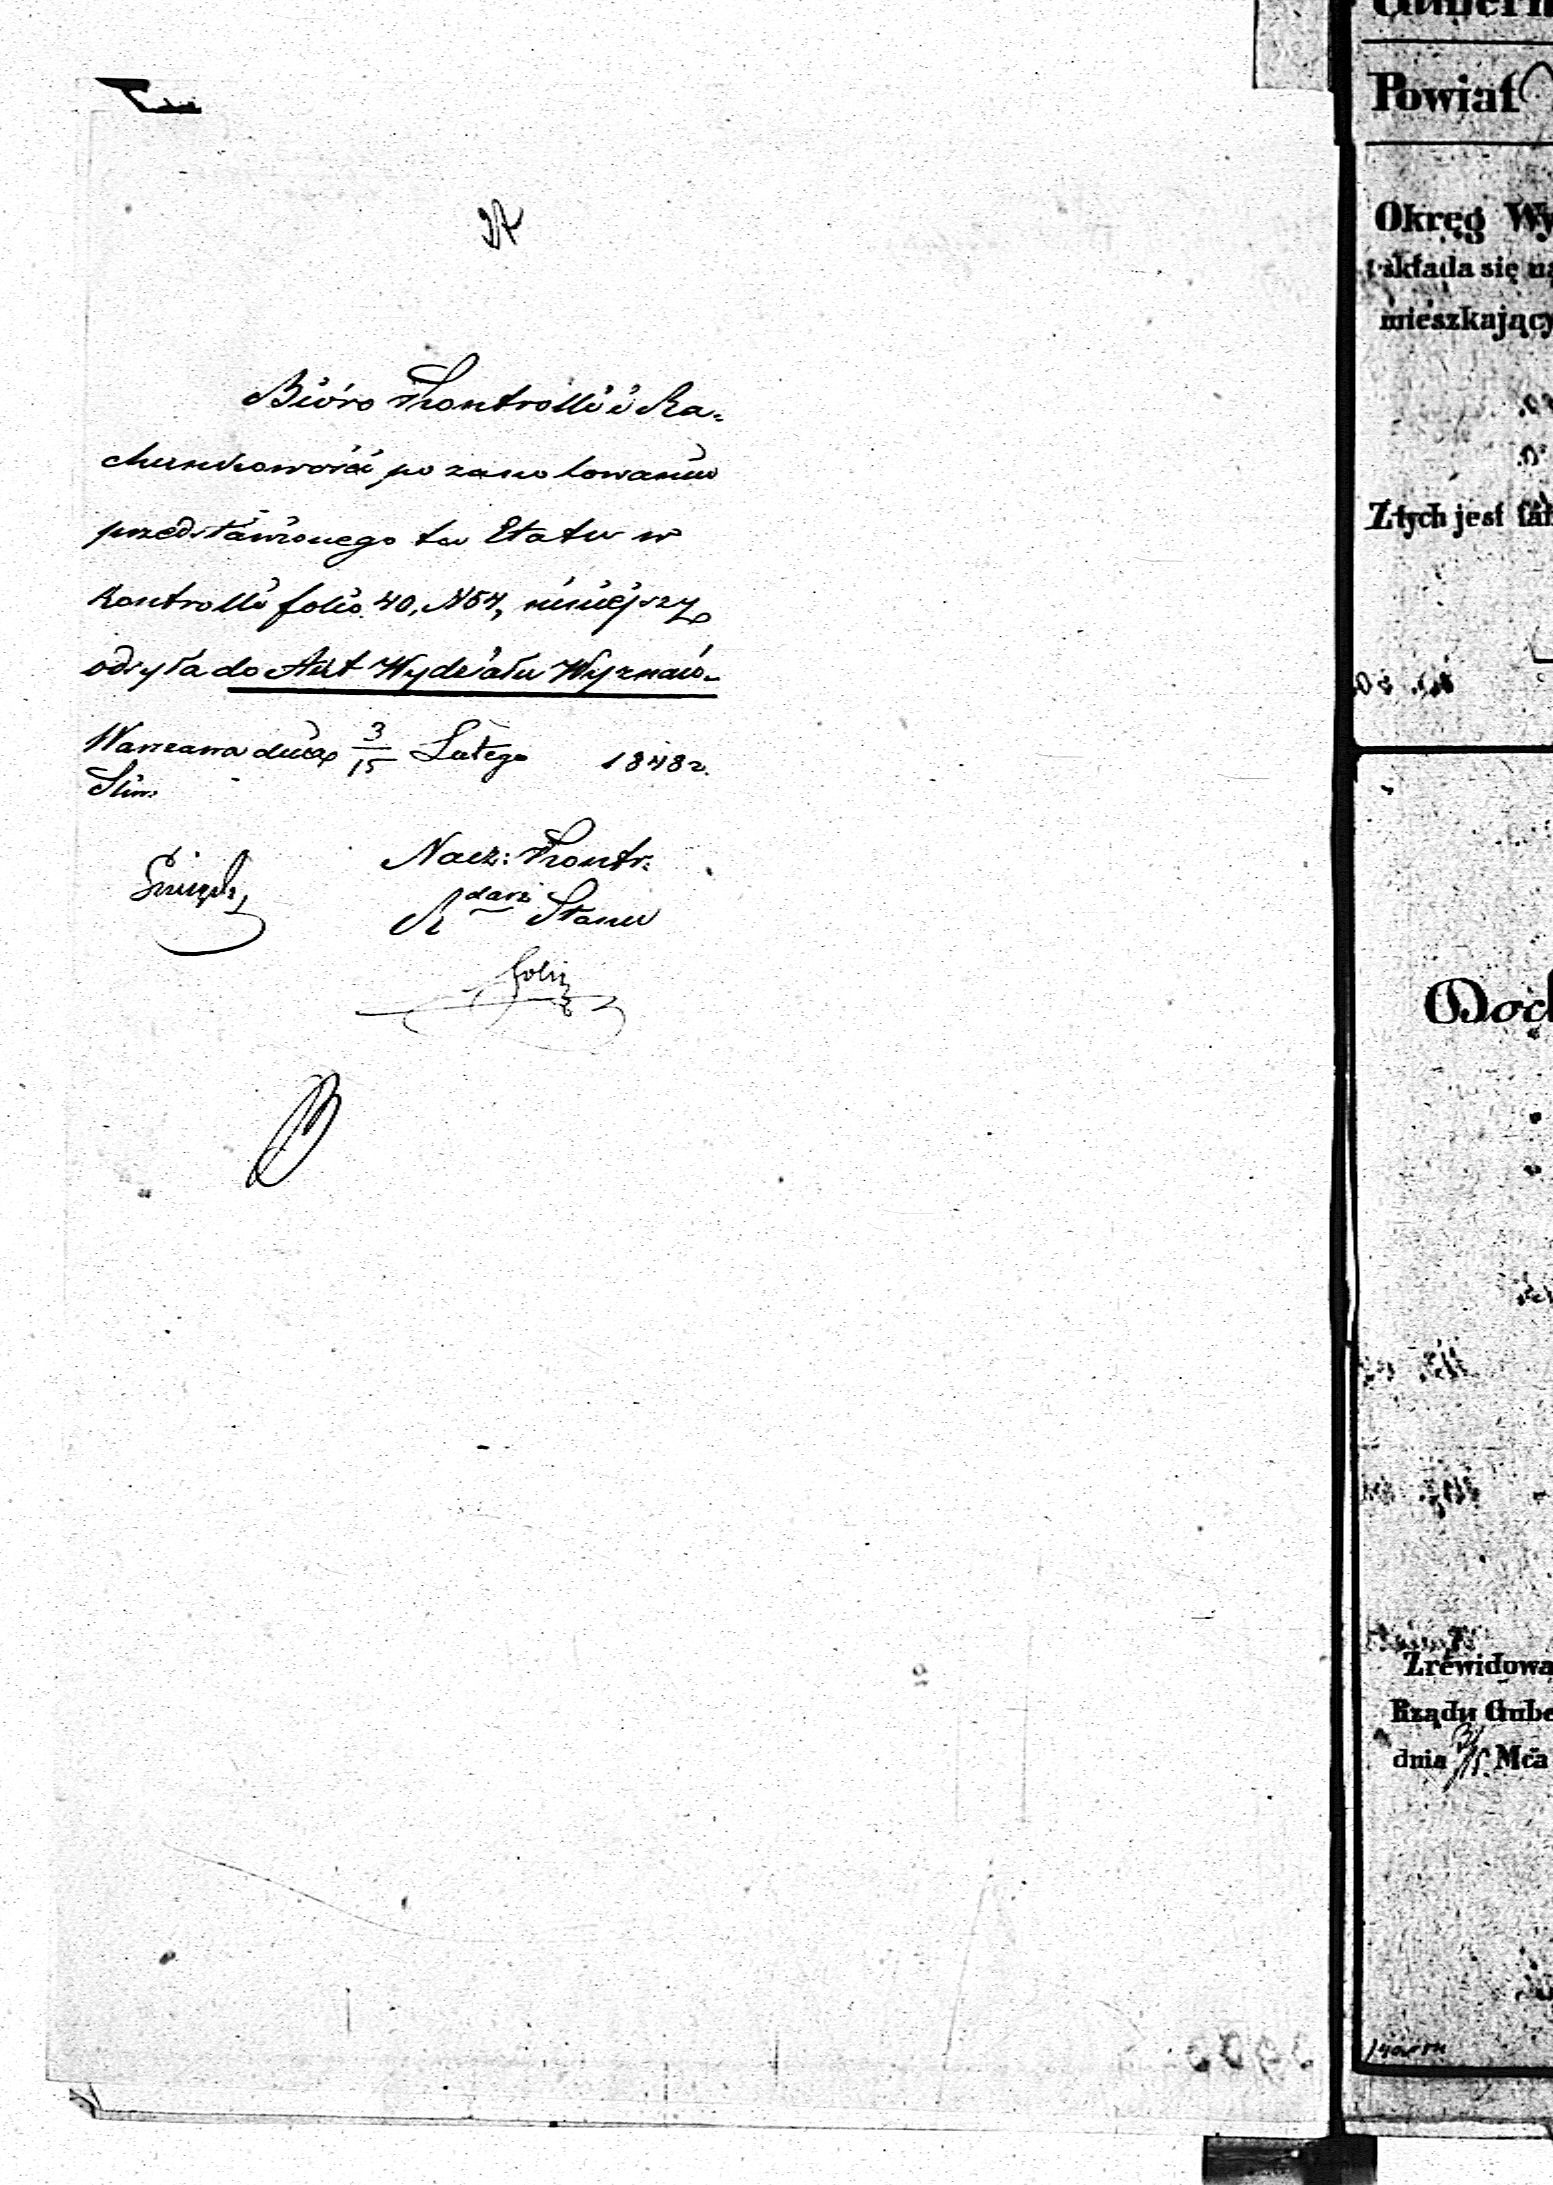 Bióro Kontrolli i Ra-
chunkowości po zanotowaniu
przedstawionego tu Etatu w
Kontrolli folio 40, N 54, niniejszy
odsyła do Akt Wydziału Wyznań.
Warszawa dnia 3/15 Lutego 1848 r.
Nacz: Kontr:
R darz Stanu
Gubern
Powiat
Okręg Wy
składa się na
mieszkający
Z tych jest fam
Doch
Zrewidowa
Rządu Gube
dnia 3/15 Mca